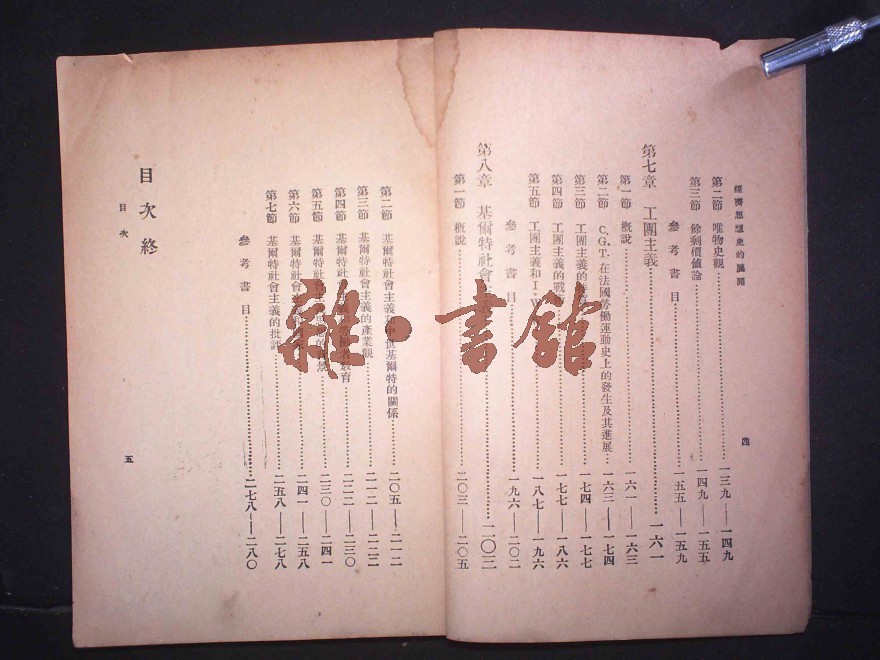 經濟思想史的展開
第二節 唯物史觀……一三九——一四九
第三節 餘剩價値論……一四九——一五五
參考書目……一五五——一五九
第七章 工團主義……一六一
第一節 概說……一六一——一六三
第二節 C.G.T.在法國勞働運動史上的發生及其進展……一六三——一七四
第三節 工團主義的……一七四——一七七
第四節 工團主義的戰……一七七——一八六
第五節 工團主義和I.W……一八七——一九六
參考書目……一九六——二〇二
第八章 基爾特社會主義……二〇三
第一節 概說……二〇三——二〇五
四
第二節 基爾特社會主義和中世基爾特的關係……二〇五——二一二
第三節 基爾特社會主義的產業觀……二一二——二二二
第四節 基爾特社會主義 勞働者敎育……二二二——二三〇
第五節 基爾特社會主義……二三〇——二四一
第六節 基爾特社會主義……二四一——二五八
第七節 基爾特社會主義的批評……二五八——二七八
參考書目……二七八——二八〇
目次終
目次
五
雜·書館